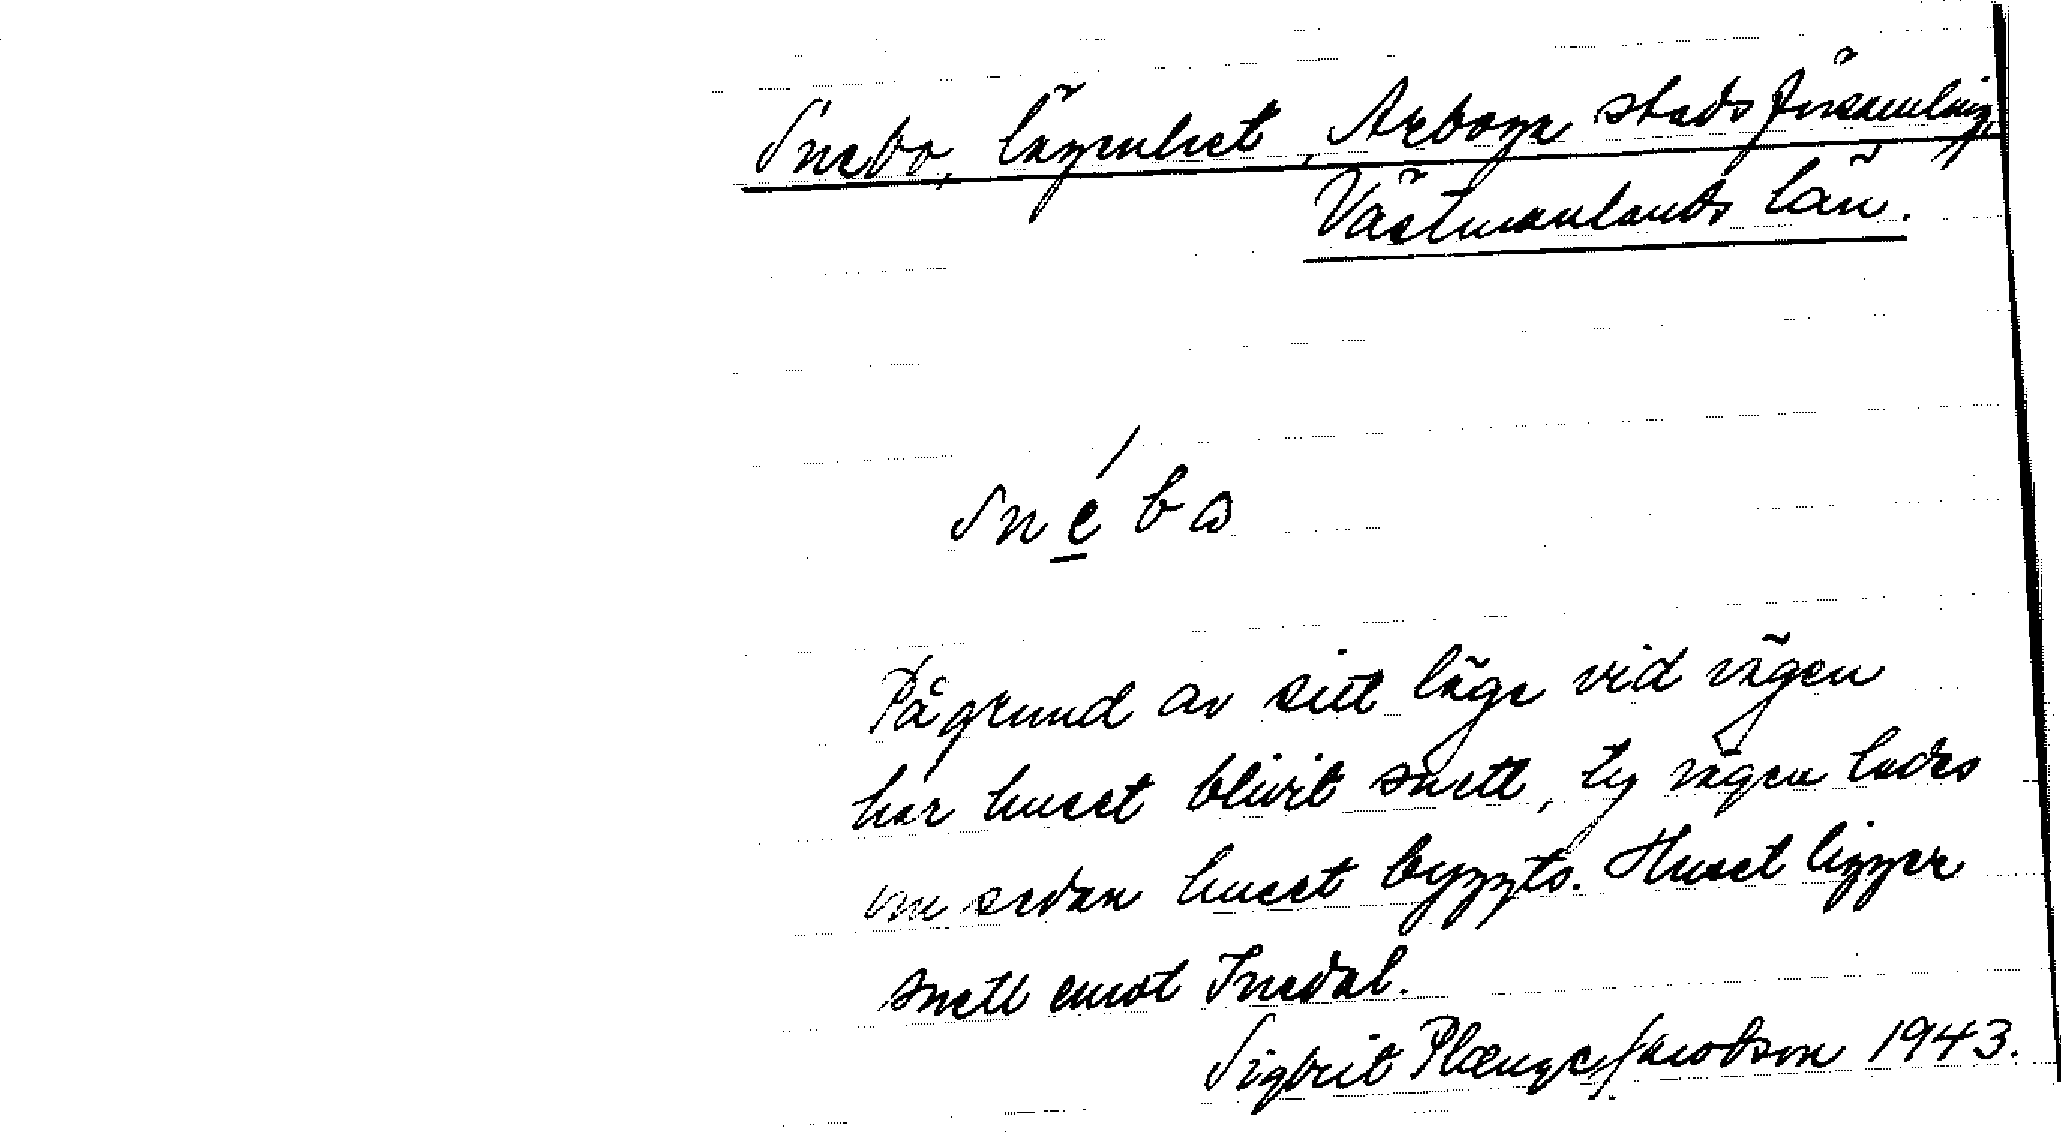 Snebo, lägenhet, Arboga stadsförsamling,
Västmanlands län.
snéba
På grund av sitt läge vid vägen
har huset blivit snett, ty vägen lades
om sedan huset byggts. Huset ligger
snett emot Fredal.
Sigbrit Plænge Jacobson 1943.